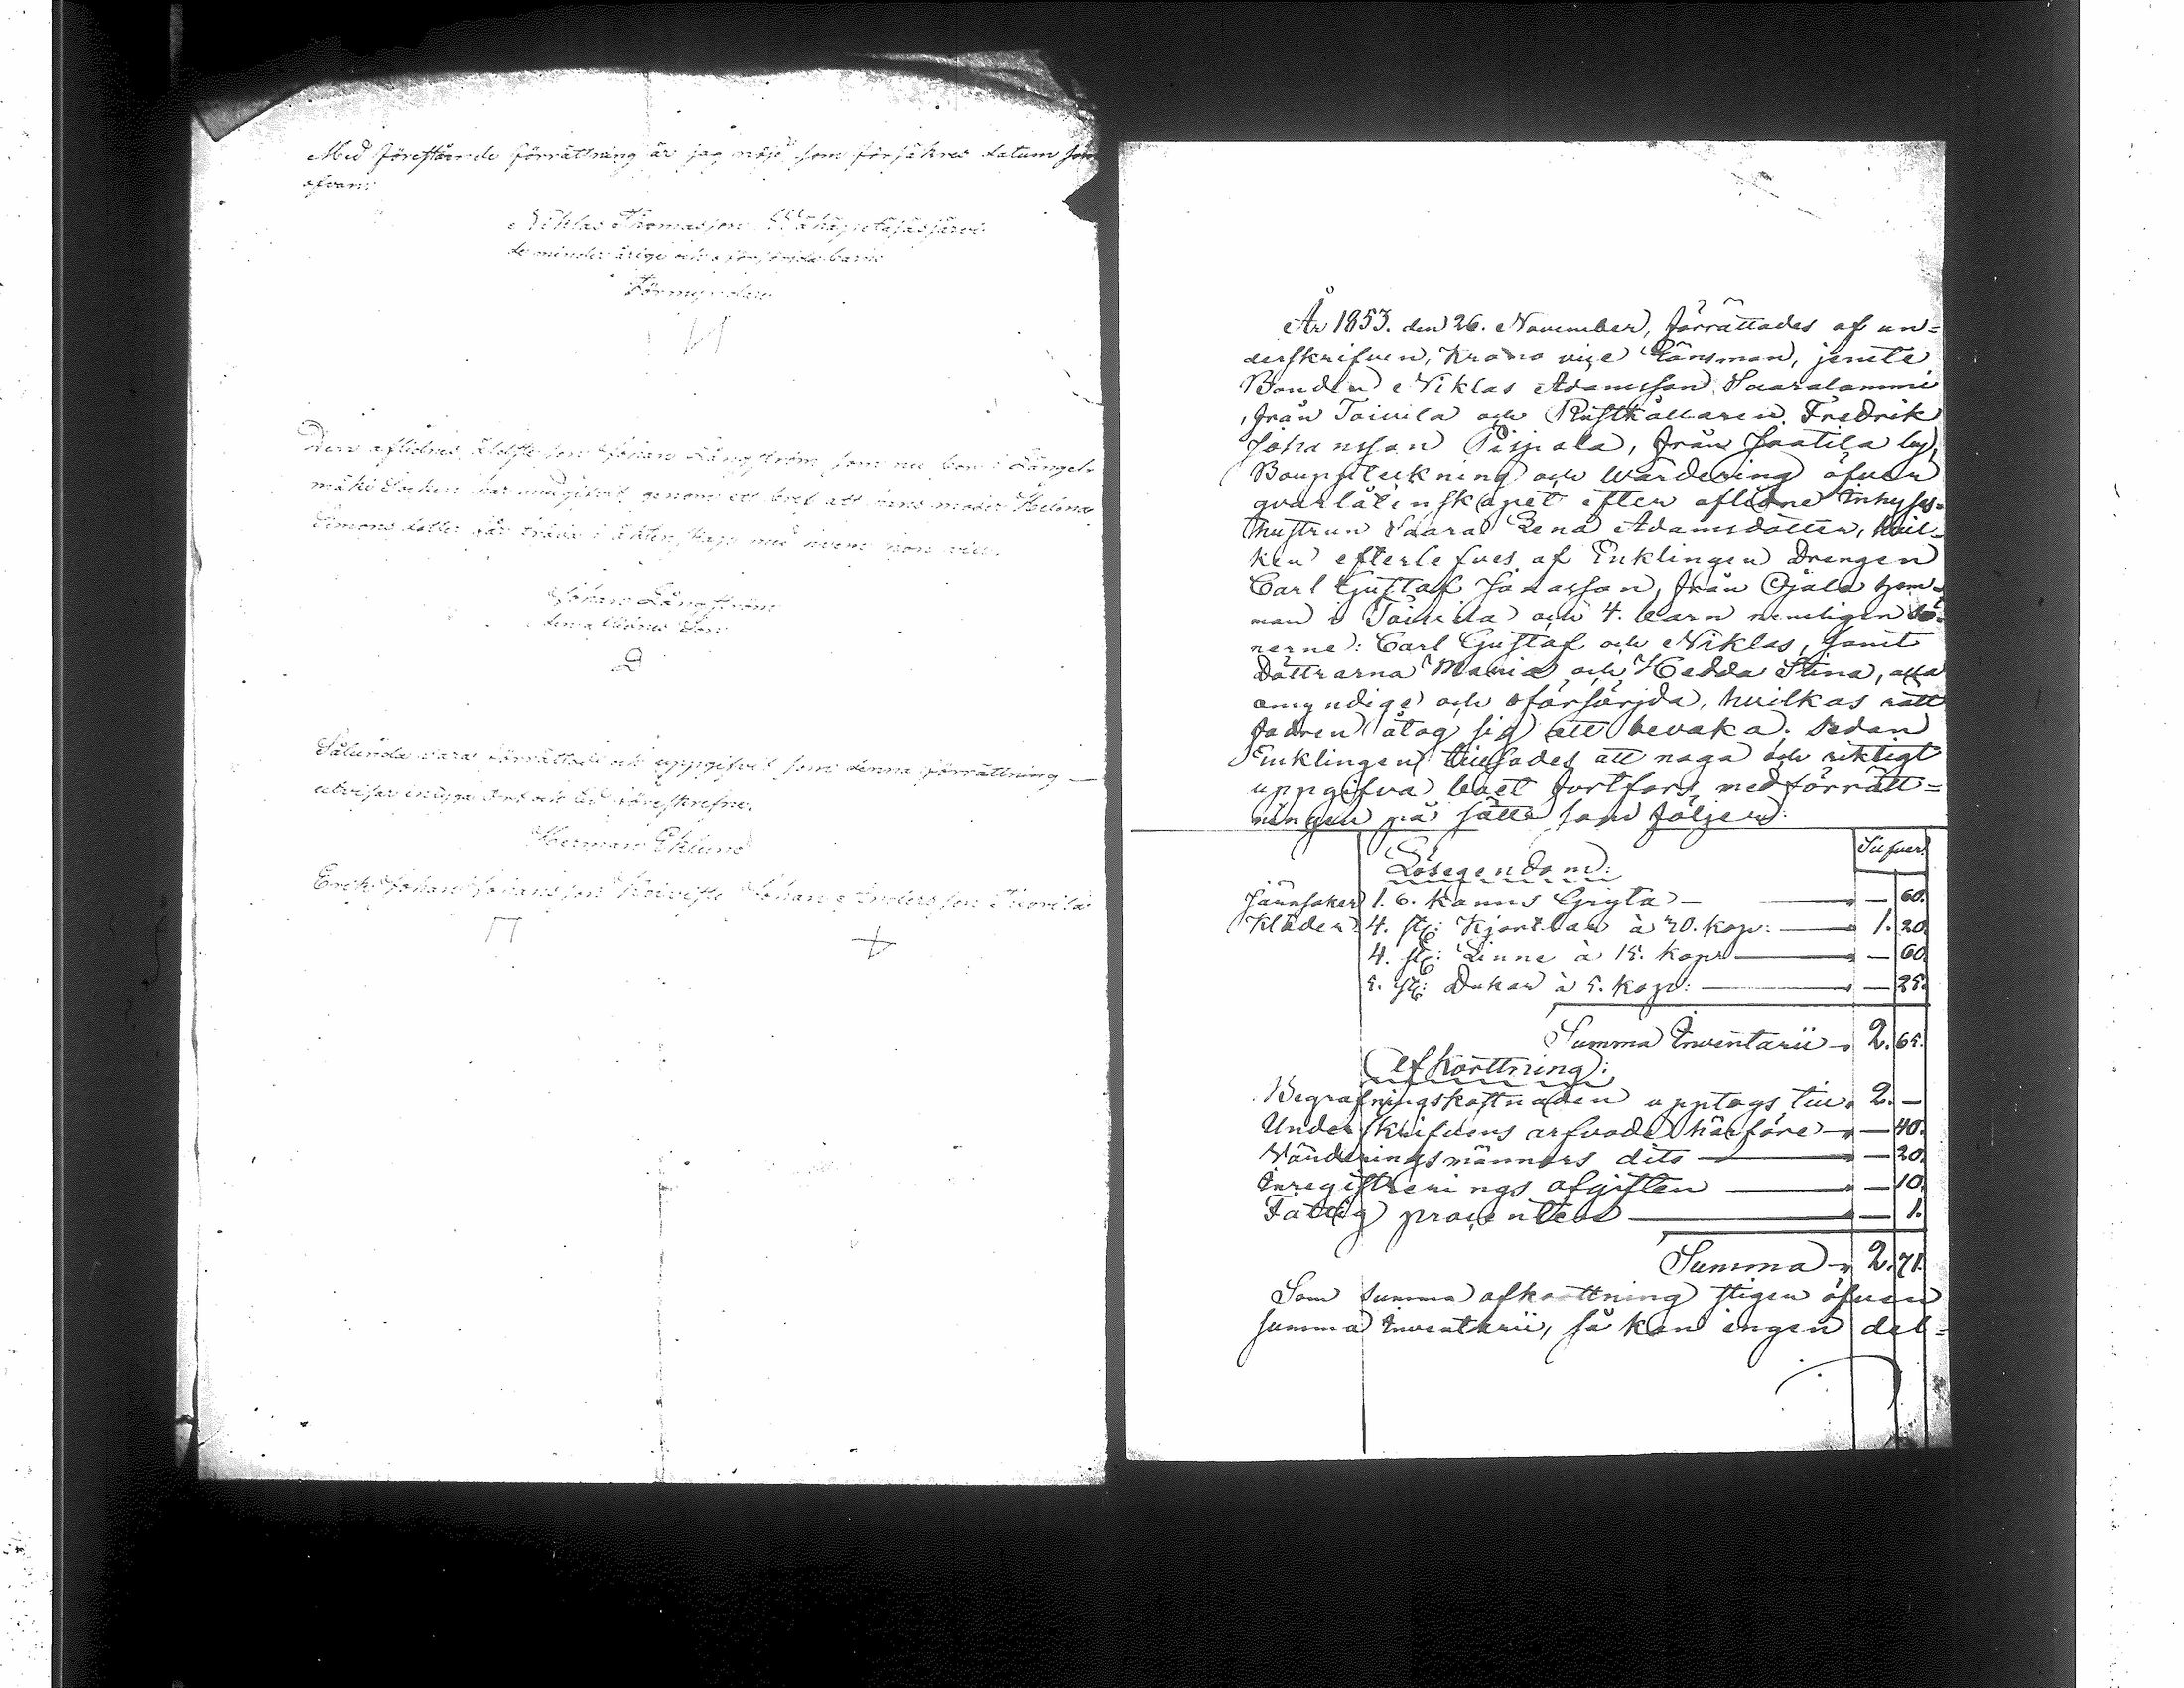 Med förestående förrättning är jag nöjd som försäkras datum som
ofvan.
Niklas Thomasson
de minder åriga och oförsörjda barns
Förmyndare
Den aflidnes äldste son Johan Långström som nu bor i Längel-
mäki Socken har medgifvit genom ett bref att hans moder Helena
Simonsdotter får träda i äktenskap med hvem hon vill.
Johan Långström
den aflidnes Son
Sålunda vara förrättadt och uppgifvet som denna förrättning —
utvisar intyga Ort och tid föreskrefne.
Herman Eklund
Erik Johan Johansson Koivisto Johan Andersson
År 1853. den 26. November, förrättades af un=
derskrifven, Krono vice Länsman, jemte
Bonden Niklas Adamsson Saaralammi
från Toivila och Rusthållaren Fredrik
Johansson Pispala, från Saatila by,
Bouppteckning och Wärdering öfver
qvarlåtenskapet efter aflidne Inhyses=
hustrun Saara Lena Adamsdotter, hvil=
ken efterlefves af Enklingen Drengen
Carl Gustaf Jonasson, från Ojala hem=
man i Toivila och 4. barn nemligen Sö=
nerne: Carl Gustaf och Niklas, samt
Döttrarna Maria och Hedda Stina, alla
omyndige och oförsörjda, hvilkas rätt
fadren åtog sig att bevaka. Sedan
Enklingen tillsades att noga och riktigt
uppgifva boet fortfors med förrätt=
ningen på sätt som följer:
Silfver
Lösegendom:
Järnsaker 1. 6. kanns Gryta — — 60.
Kläder 4. st: Kjortlar à 30. kop: — 1. 20.
4. st: Linne à 15. kop — — 60.
5. st: Dukar à 5. kop: — — 25.
Summa Inventarii 2. 65.
Afkorttning:
Begrafningskostnaden upptogs till 2. —
Underskrifvens arfvode härföre — — 40.
Värderingsmänners dito — — 20.
Inregistrerings afgiften — — 10.
Fattig procenten — — 1.
Summa 2. 71.
Som summa afkorttning stiger öfver
summa Inventarii, så kan ingen del=